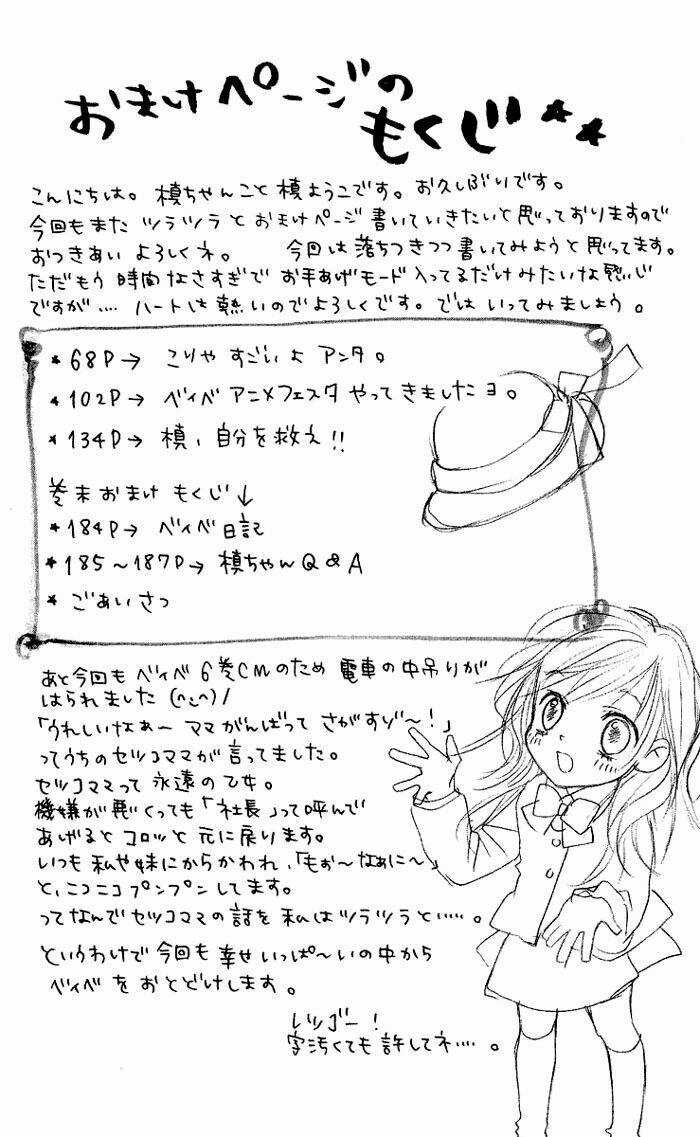 おまけページの
もくじ☆☆
こんにちは。槙ちゃんこと槙ようこです。お久しぶりです。
今回もまたツラツラとおまけページ書いていきたいと思っておりますので
おつきあいよろしくネ。 今回は落ちつきつつ書いてみようと思ってます。
ただもう時間なさすぎでお手あげモード入ってるだけみたいな感じ
ですが…ハートは熱いのでよろしくです。ではいってみましょう。
*68P→ こりゃすごいよアンタ。
*102P→ ベイベアニメフェスタやってきましたヨ。
*134P→ 槙、自分を救え!!
巻末おまけもくじ↓
*184P→ ベイベ日記
*185〜187P→ 槙ちゃんQ&A
* ごあいさつ
あと今回もベイベ6巻CMのため電車の中吊りが
はられました(^ـ^)/
「うれしいなぁー ママがんばってさがすぞ〜!」
ってうちのセツコママが言ってました。
セツコママって永遠の乙女。
機嫌が悪くっても「社長」って呼んで
あげるとコロッと元に戻ります。
いつも私や妹にからかわれ、「もぉ〜なぁに〜」
と、ニコニコプンプンしてます。
ってなんでセツコママの話を私はツラツラと……。
というわけで今回も幸せいっぱ〜いの中から
ベイベをおとどけします。
レッツゴー!
字汚くても許してネ….。